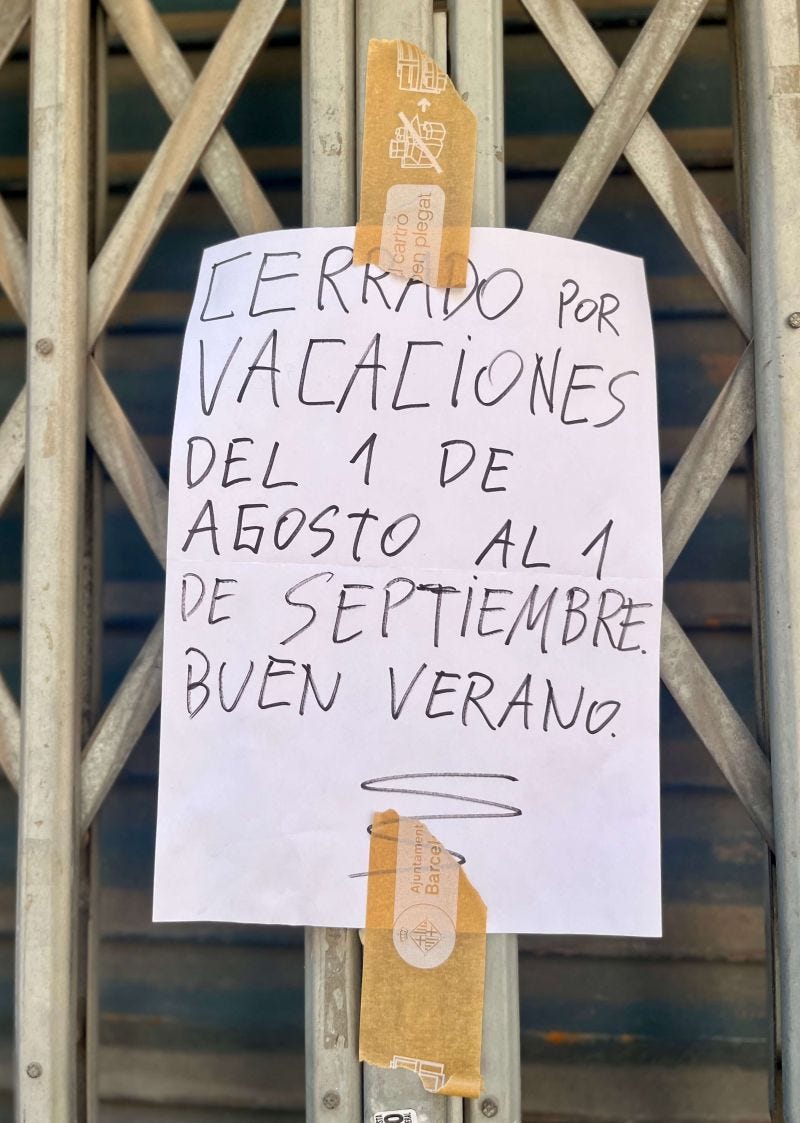 el cartró
ben plegat
CERRADO POR
VACACIONES
DEL 1 DE
AGOSTO AL 1
DE SEPTIEMBRE.
BUEN VERANO.
Ajuntament